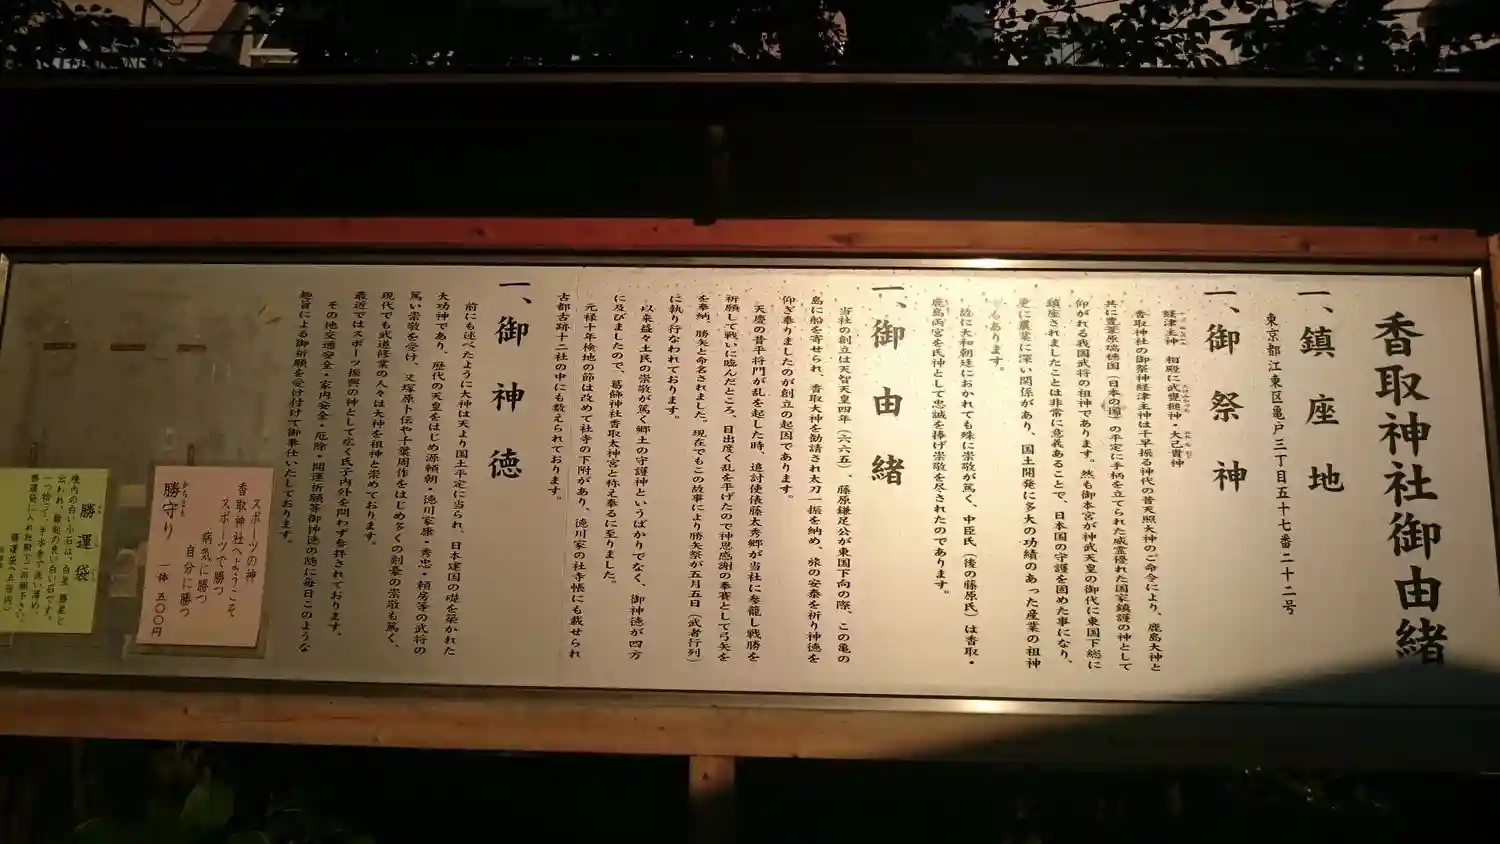 香取神社御由緒
一、鎮座地
東京都江東区亀戸三丁目五十七番二十二号
一、御祭神
経津主神 相殿に武甕槌神・大己貴神
香取神社の御祭神経津主神は千早振る神代の昔天照大神のご命令により、鹿島大神と
共に豊葦原瑞穂国（日本の国）の平定に手柄を立てられた威霊優れた国家鎮護の神として
仰がれる我国武将の祖神であります。然も御本宮が神武天皇の御代に東国下総に
鎮座されましたことは非常に意義あることで、日本国の守護を固めた事になり、
更に農業に深い関係があり、国土開発に多大の功績のあった産業の祖神
でもあります。
故に大和朝廷におかれても殊に崇敬が篤く、中臣氏（後の藤原氏）は香取・
鹿島両宮を氏神として忠誠を捧げ崇敬を尽されたのであります。
一、御由緒
当社の創立は天智天皇四年（六六五）、藤原鎌足公が東国下向の際、この亀の
島に船を寄せられ、香取大神を勧請され太刀一振を納め、旅の安泰を祈り神徳を
仰ぎ奉りましたのが創立の起因であります。
天慶の昔平将門が乱を起した時、追討使俵藤太秀郷が当社に参籠し戦勝を
祈願して戦いに臨んだところ、目出度く乱を平げたので神恩感謝の奉賽として弓矢を
を奉納、勝矢と命名されました。現在でもこの故事により勝矢祭が五月五日（武者行列）
に執り行なわれております。
以来益々土民の崇敬が篤く郷土の守護神というばかりでなく、御神徳が四方
に及びましたので、葛飾神社香取太神宮と称え奉るに至りました。
元禄十年検地の節は改めて社寺の下附があり、徳川家の社寺帳にも載せられ
古都古跡十二社の中にも数えられております。
一、御神徳
前にも述べたように大神は天より国土平定に当られ、日本建国の礎を築かれた
大功神であり、歴代の天皇をはじめ源頼朝・徳川家康・秀忠・頼房等の武将の
篤い崇敬を受け、又塚原卜伝や千葉周作をはじめ多くの剣豪の崇敬も篤く、
現代でも武道修業の人々は大神を祖神と崇めております。
最近ではスポーツ振興の神として広く氏子内外を問わず参拝されております。
その他交通安全・家内安全・厄除・開運祈願等御神徳の随に毎日このような
趣旨による御祈願を受け付けて御奉仕いたしております。
スポーツの神
香取神社へようこそ
スポーツで勝つ
病気に勝つ
自分に勝つ
勝守り 一体 五〇〇円
勝運袋
境内の白い小石は、白星 勝星と
云われ、縁起の良い白い石です。
一つ拾って、手水舎で洗い清め、
勝運袋に入れ社殿でご祈願下さい。